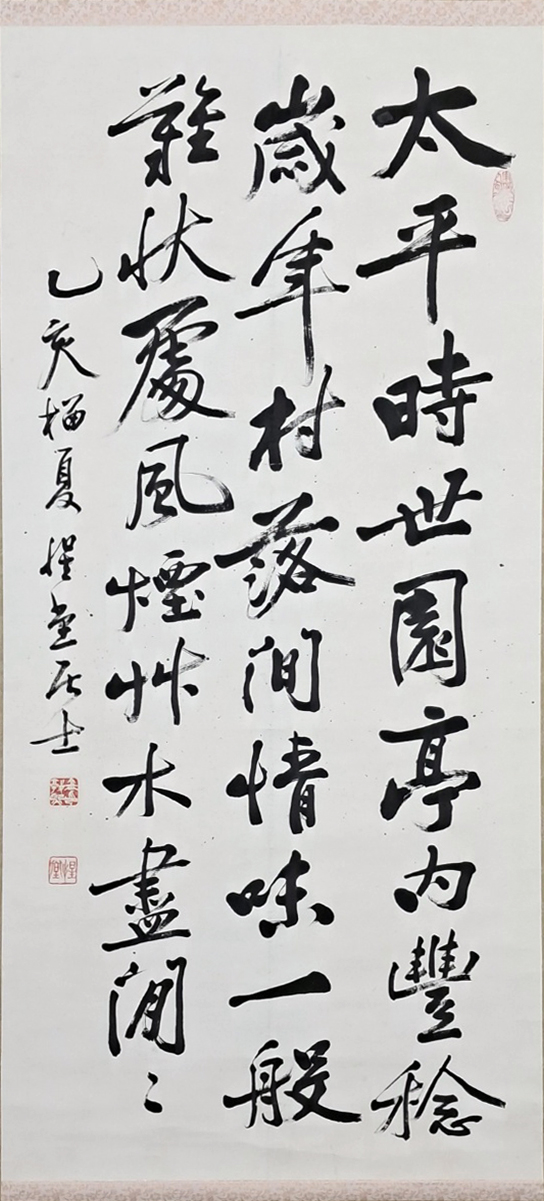 太平時世園亭内豐稔
歳年村落間情味一般
難狀處風煙艸木盡閒〻
乙亥榴夏惺堂居士
惺堂